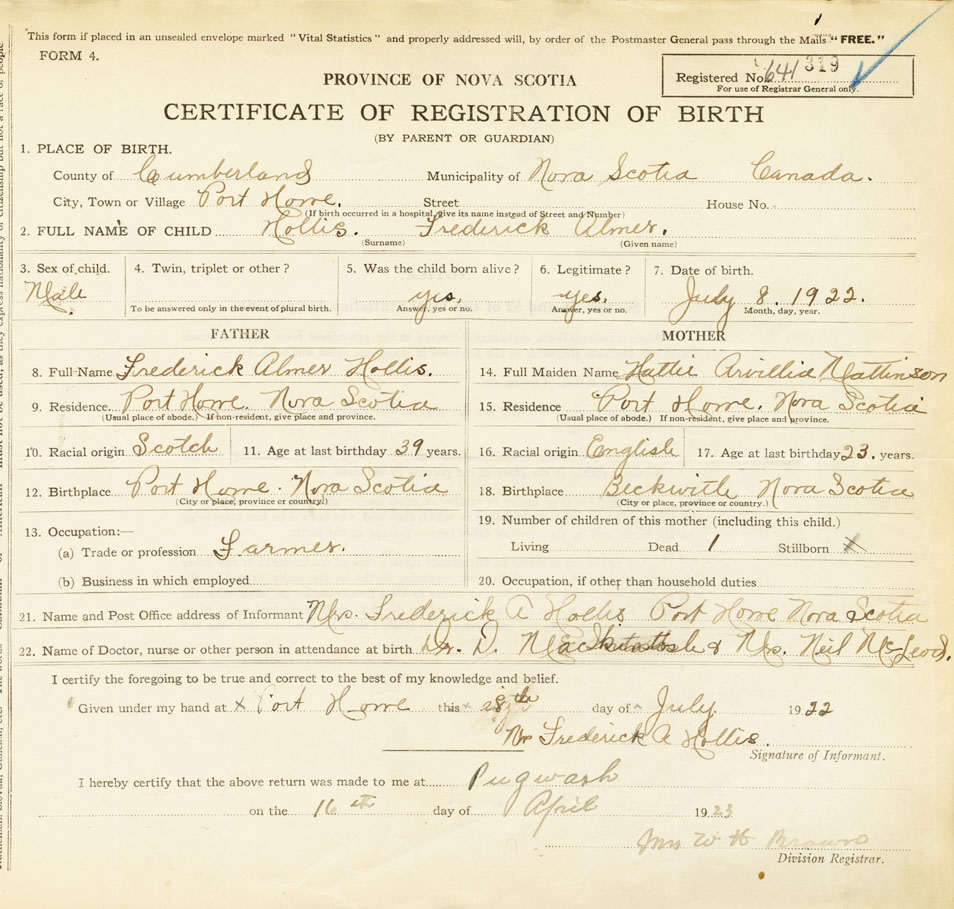 This form if placed in an unsealed envelope marked "Vital Statistics" and properly addressed will, by order of the Postmaster General pass through the Mails "FREE."
FORM 4.
Registered No. 641 319
For use of Registrar General only.
PROVINCE OF NOVA SCOTIA
CERTIFICATE OF REGISTRATION OF BIRTH
(BY PARENT OR GUARDIAN)
1. PLACE OF BIRTH.
County of Cumberland Municipality of Nova Scotia Canada.
City, Town or Village Port Howe. Street House No.
(If birth occurred in a hospital, give its name instead of Street and Number)
2. FULL NAME OF CHILD Hollis. Frederick Almer.
(Surname) (Given name)
3. Sex of child. 4. Twin, triplet or other? 5. Was the child born alive? 6. Legitimate? 7. Date of birth.
Male yes. yes. July 8. 1922.
To be answered only in the event of plural birth. Answer, yes or no. Answer, yes or no. Month, day, year.
FATHER MOTHER
8. Full Name Frederick Almer Hollis. 14. Full Maiden Name Hattie Arvillia Mattinson
9. Residence Port Howe. Nova Scotia 15. Residence Port Howe. Nova Scotia
(Usual place of abode.) If non-resident, give place and province. (Usual place of abode.) If non-resident, give place and province.
10. Racial origin Scotch 11. Age at last birthday 39 years. 16. Racial origin English 17. Age at last birthday 23. years.
12. Birthplace Port Howe. Nova Scotia 18. Birthplace Beckwith Nova Scotia
(City or place, province or country.) (City or place, province or country.)
13. Occupation:— 19. Number of children of this mother (including this child.)
(a) Trade or profession Farmer. Living Dead 1 Stillborn
(b) Business in which employed 20. Occupation, if other than household duties
21. Name and Post Office address of Informant Mrs. Frederick A Hollis Port Howe Nova Scotia
22. Name of Doctor, nurse or other person in attendance at birth Dr. D. & Mrs. Neil McLeod.
I certify the foregoing to be true and correct to the best of my knowledge and belief.
Given under my hand at x Port Howe this x 28th day of x July. 1922
Mrs Frederick A Hollis.
Signature of Informant.
I hereby certify that the above return was made to me at Pugwash
on the 16th day of April 1923
Mrs W H Brown
Division Registrar.